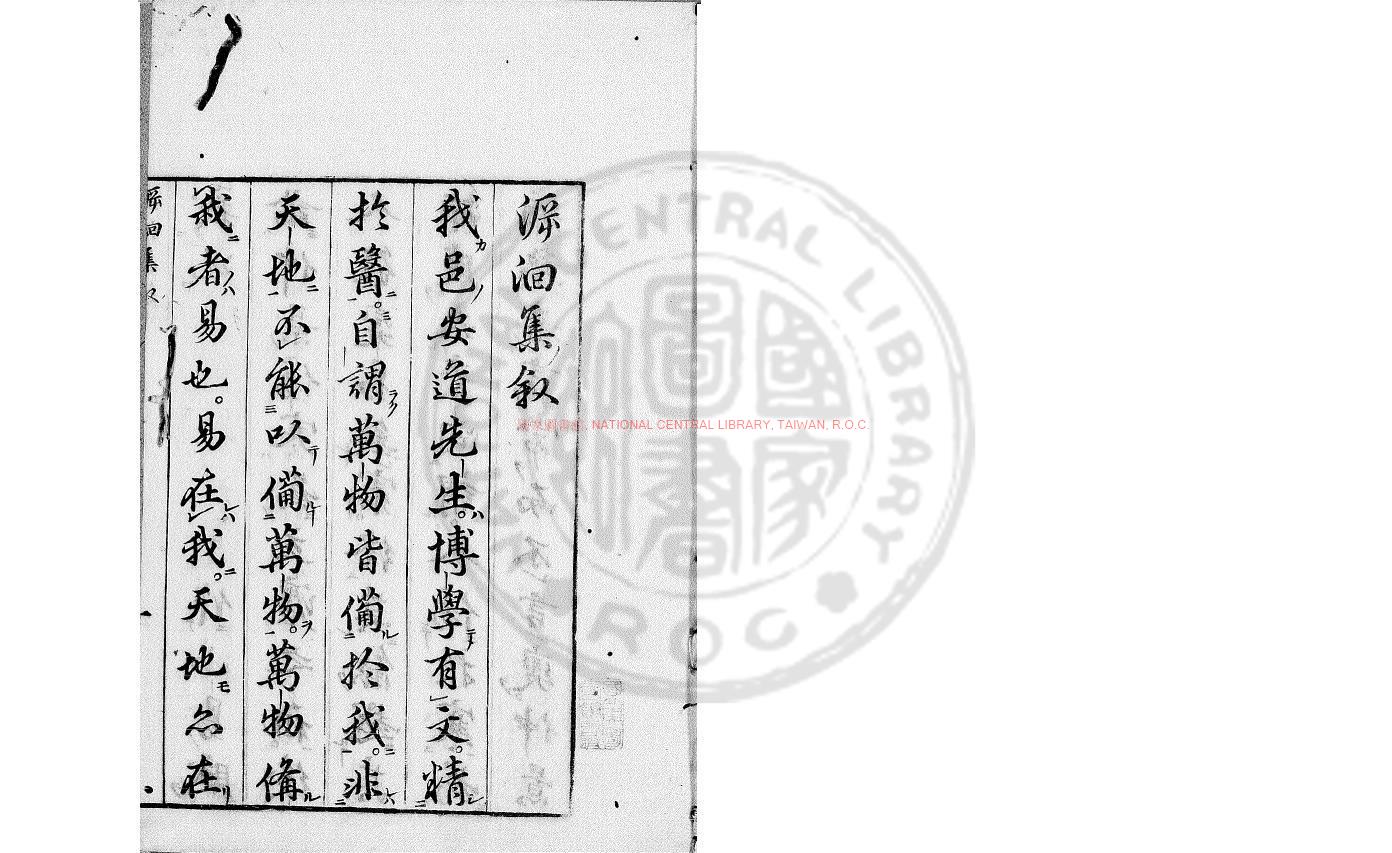 源洄集叙
我邑安道先生。博學有文。精
於醫。自謂萬物皆備於我。非
天地不能以備萬物。萬物備
我者易也。易在我。天地亦在
NATIONAL CENTRAL LIBRARY, TAIWAN, R.O.C.
CENTRAL LIBRARY
ROC